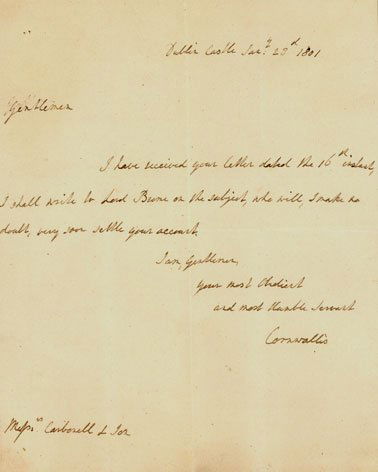 Dublin Castle Jan.y 20th 1801
Gentlemen
I have received your letter dated the 16th instant,
I shall write to Lord Brome on the subject, who will, I make no
doubt, very soon settle your account.
I am, Gentlemen,
your most Obedient
and most Humble Servant
Cornwallis
Messrs Carbonell & Son